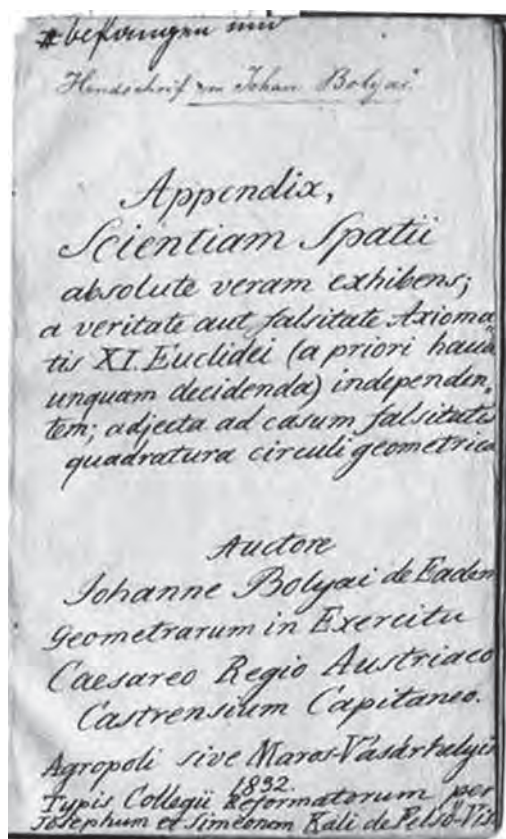 Handschrif von Johan Bolyai
Appendix,
Scientiam Spatii
absolute veram exhibens;
a veritate aut falsitate Axioma
tis XI. Euclidei (a priori haud
unquam decidenda) independen
tem; adjecta ad casum falsitatis
quadratura circuli geometrica
Auctore
Johanne Bolyai de Eadem
Geometrarum in Exercitu
Caesareo Regio Austriaco
Castrensium Capitaneo.
Agropoli sive Maros-Vásárhelyin
1832.
Typis Collegii Reformatorum per
Josephum et Simeonem Kali de Felső-Vis